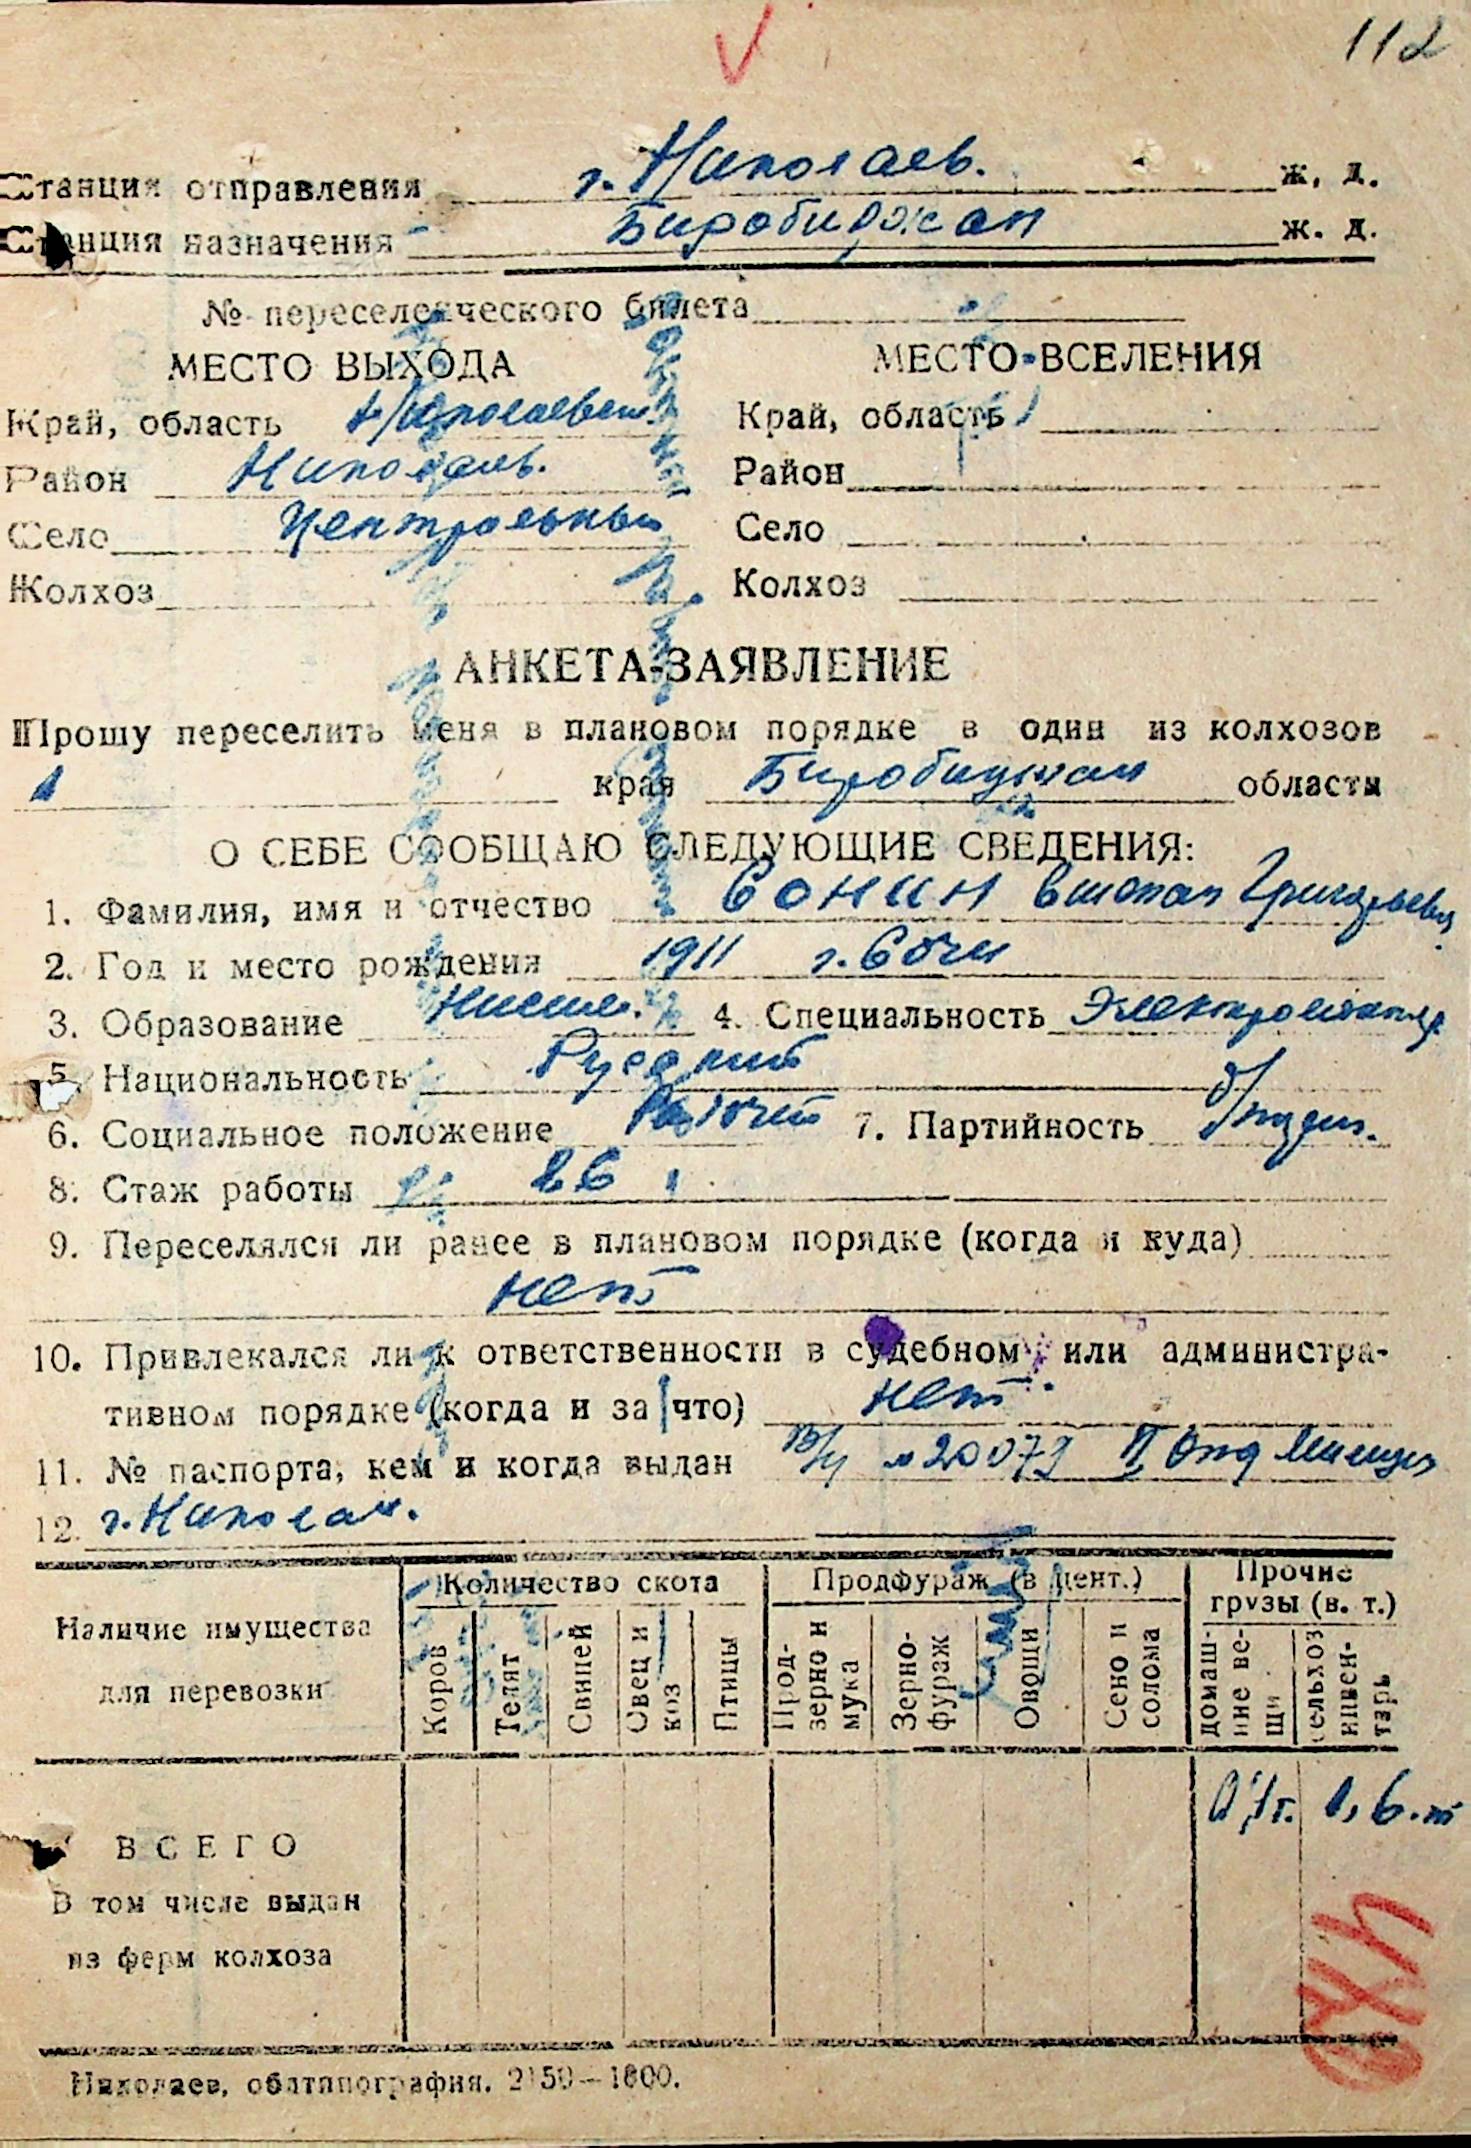 112
Станция отправления г. Николаев. ж. д.
Станция назначения Биробиджан ж. д.
№ переселенческого билета
МЕСТО ВЫХОДА
Край, область Николаевск.
Район Николаев.
Село Центральный
Колхоз
МЕСТО ВСЕЛЕНИЯ
Край, область
Район
Село
Колхоз
АНКЕТА-ЗАЯВЛЕНИЕ
Прошу переселить меня в плановом порядке в один из колхозов
края Биробиджан области
О СЕБЕ СООБЩАЮ СЛЕДУЮЩИЕ СВЕДЕНИЯ:
1. Фамилия, имя и отчество Сонин Григорьевич
2. Год и место рождения 1911 г. Сочи
3. Образование Низшее. 4. Специальность
5. Национальность Русский
6. Социальное положение Рабочий 7. Партийность б/парт.
8. Стаж работы 26
9. Переселялся ли ранее в плановом порядке (когда и куда)
нет
10. Привлекался ли к ответственности в судебном или администра-
тивном порядке (когда и за что) нет.
11. № паспорта, кем и когда выдан II Отд Милиции
12. г. Николаев.
Наличие имущества
для перевозки
Количество скота
Коров
Телят
Свиней
Овец и
коз
Птицы
Продфураж (в цент.)
Прод-
зерно и
мука
Зерно-
фураж
Овощи
Сено и
солома
Прочие
грузы (в. т.)
домаш-
ние ве-
щи
сельхоз
инвен-
тарь
ВСЕГО
В том числе выдан
из ферм колхоза
Николаев, облтипография. 2150—1600.